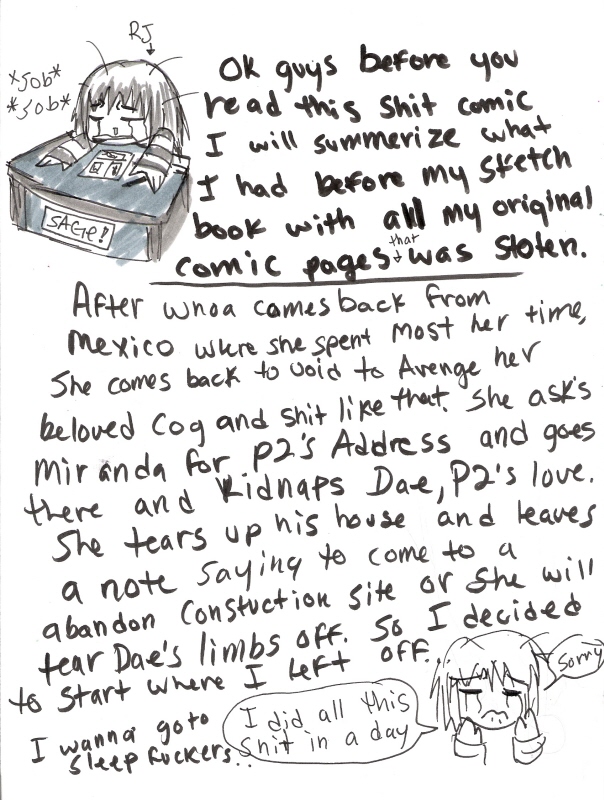 RJ
*sob*
*sob*
SAGTP!
OK guys before you
read this shit comic
I will summerize what
I had before my sketch
book with all my original
comic pages that was stolen.
After whoa comes back from
Mexico where she spent most her time,
She comes back to void to Avenge her
beloved Cog and shit like that. She ask's
Miranda for P2's Address and goes
there and kidnaps Dae, P2's love.
She tears up his house and leaves
a note saying to come to a
abandon constuction site or she will
tear Dae's limbs off. So I decided
to start where I left off..
Sorry
I did all this
shit in a day
I wanna go to
sleep fuckers..